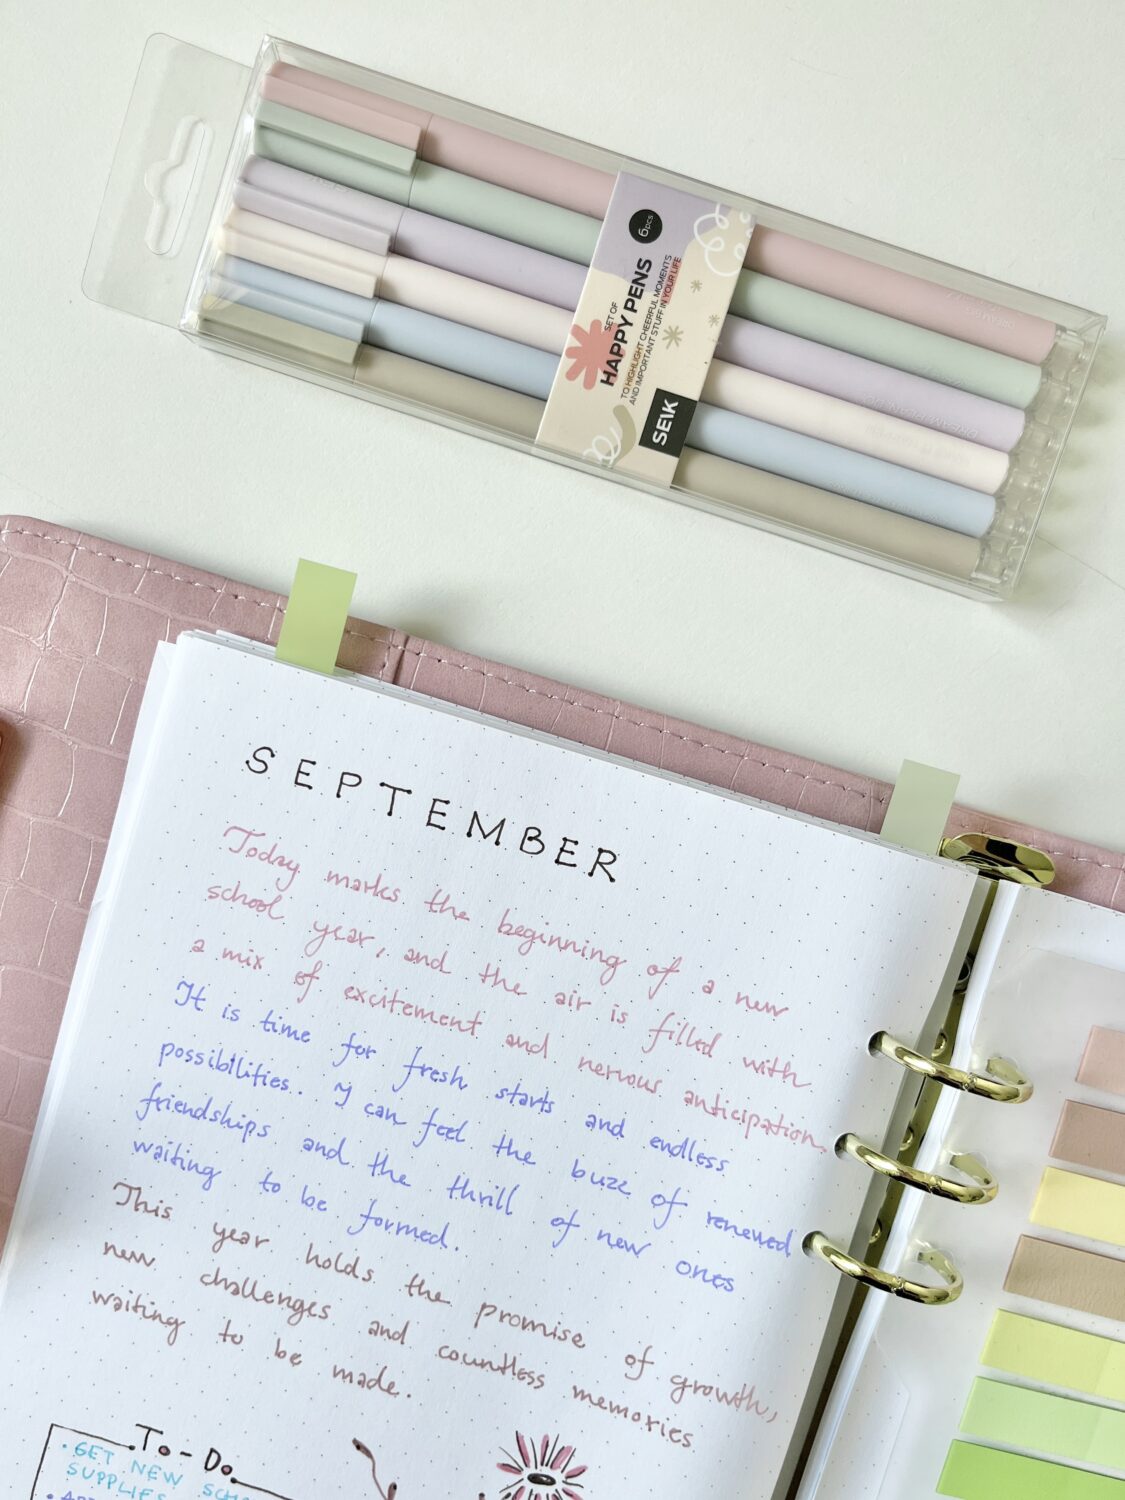 6pcs
SET OF
HAPPY PENS
TO HIGHLIGHT CHEERFUL MOMENTS
AND IMPORTANT STUFF IN YOUR LIFE
SEIK
DREAM
SEPTEMBER
Today marks the beginning of a new
school year, and the air is filled with
a mix of excitement and nervous anticipation.
It is time for fresh starts and endless
possibilities. I can feel the buzz of renewed
friendships and the thrill of new ones
waiting to be formed.
This year holds the promise of growth,
new challenges and countless memories
waiting to be made.
To-Do
• GET NEW
SUPPLIES